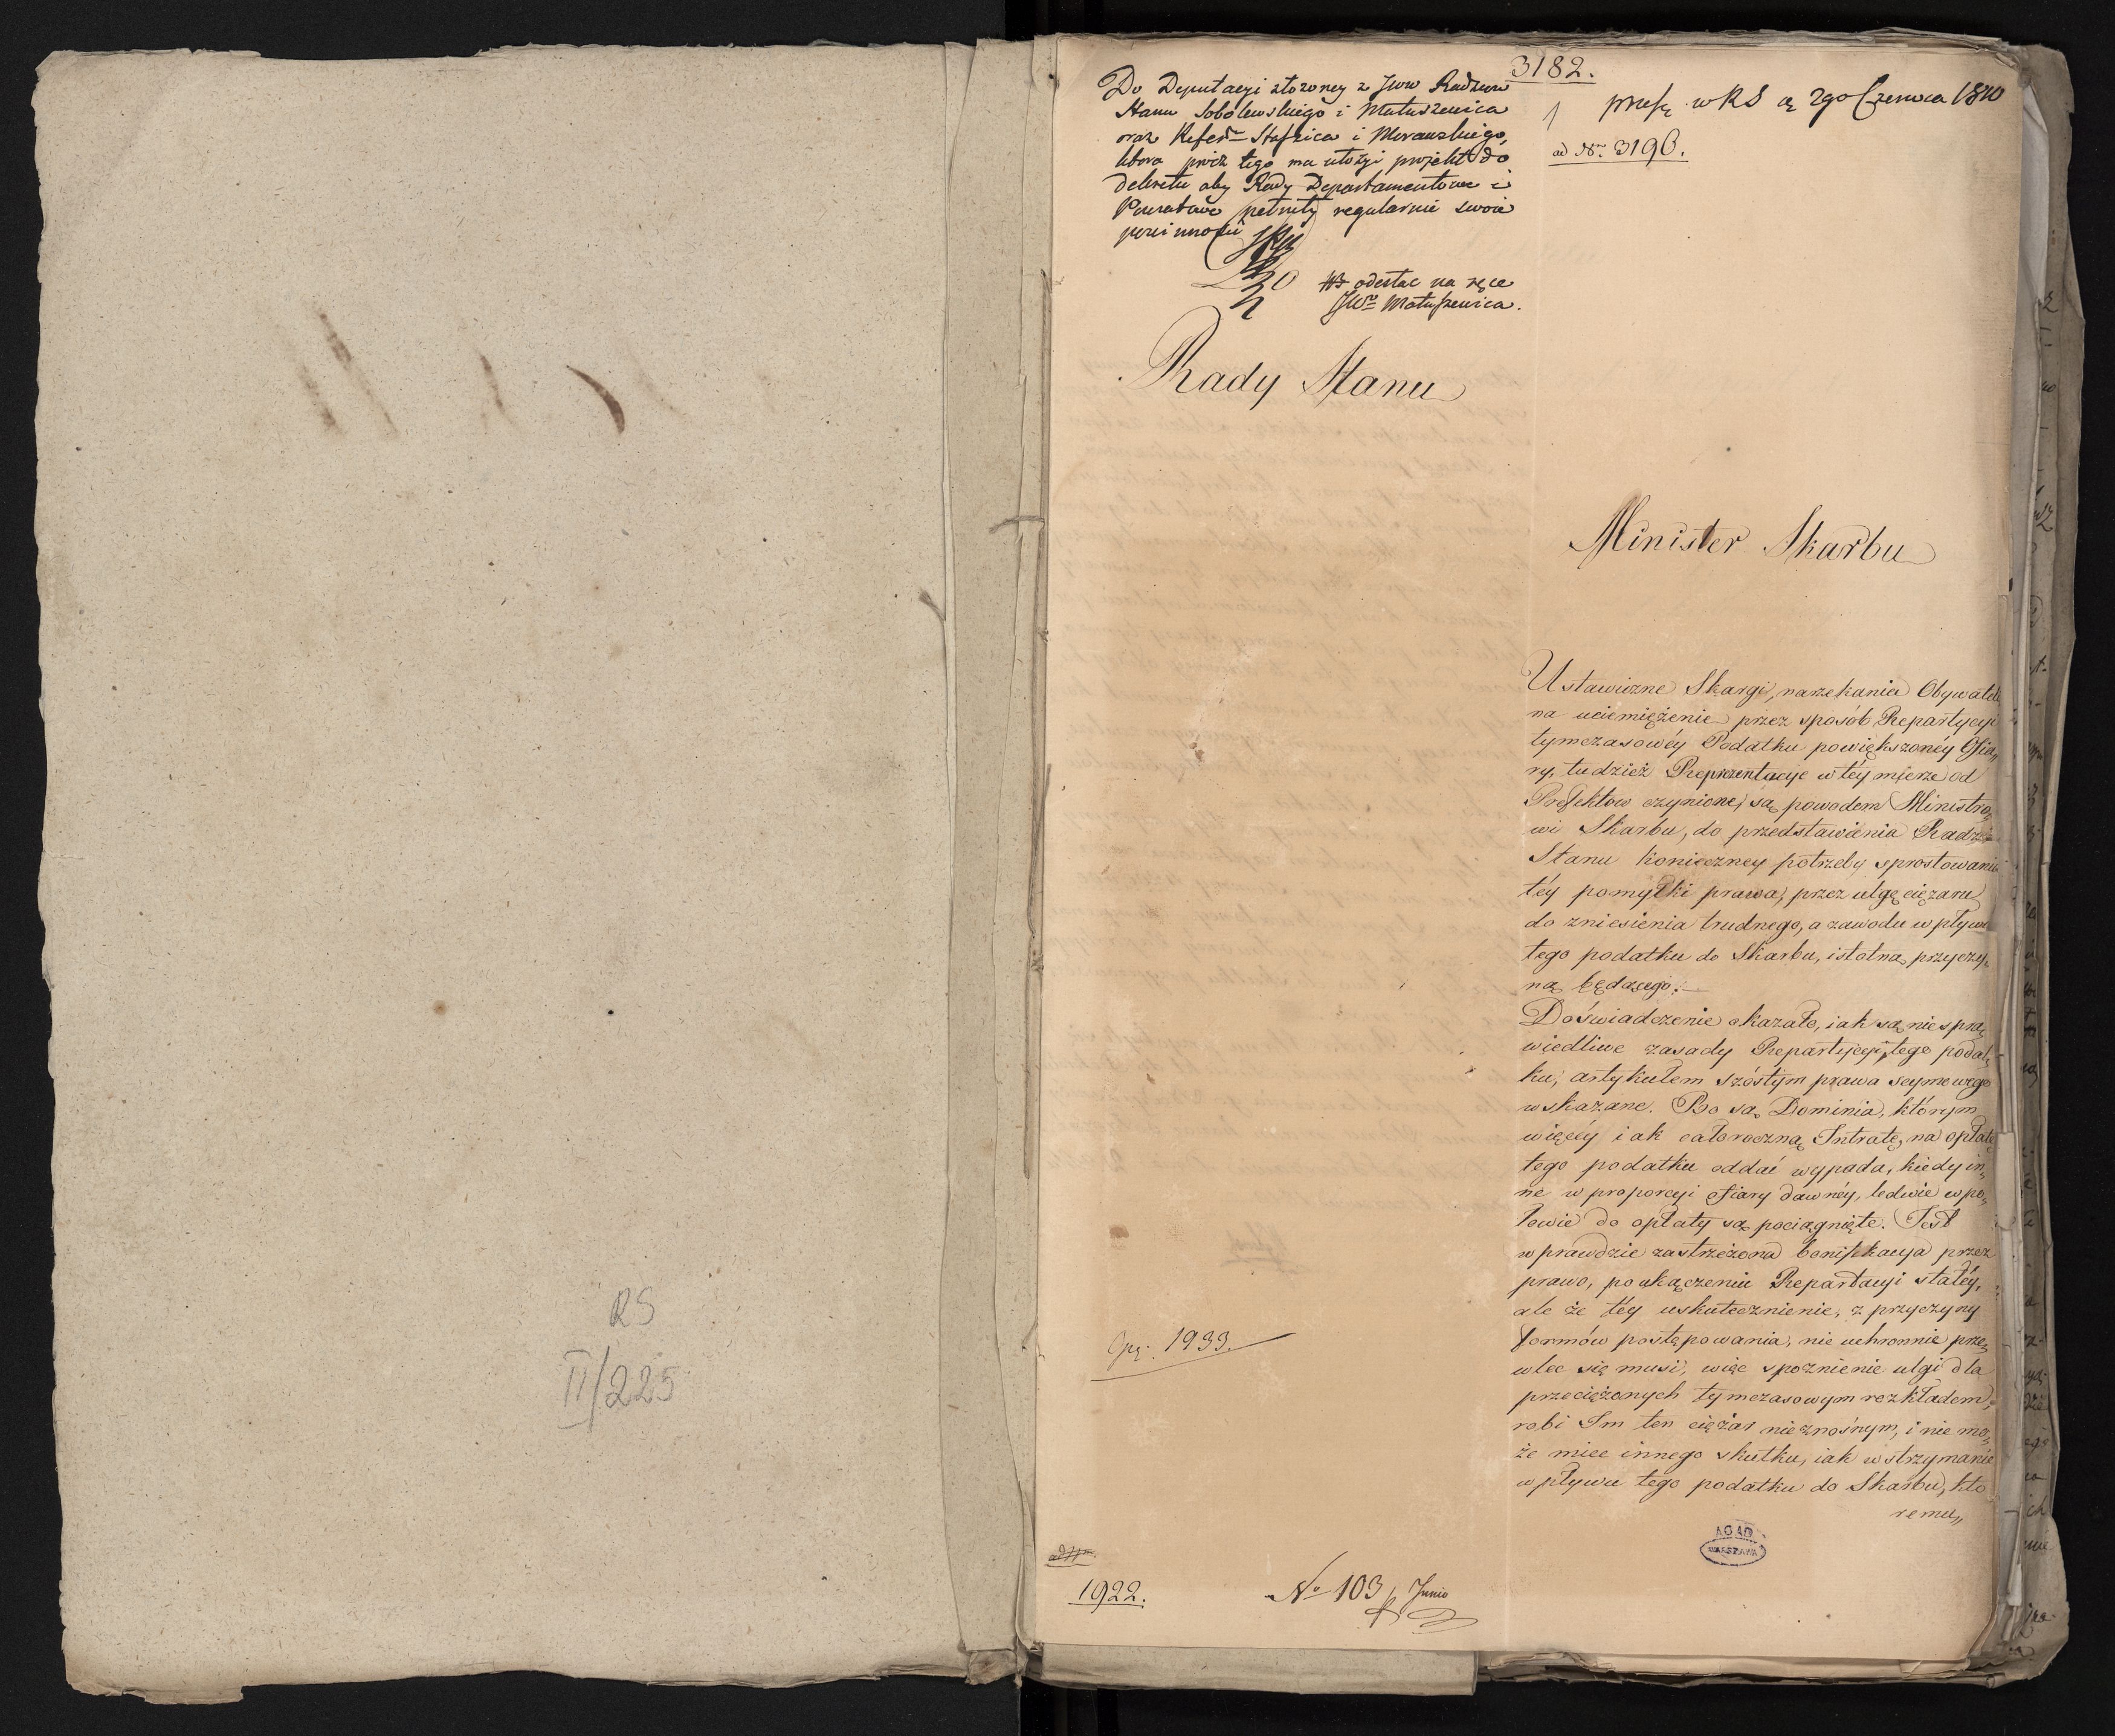 RS
II/225
3182.
Do Deputacyi złożoney z JWW Radzców
Stanu Sobolewskiego i Matuszewica
oraz Refer. Staszica i Morawskiego,
która prócz tego ma ułożyć projekt do
dekretu aby Rady Departamentowe i
Powiatowe pełniły regularnie swoie
powinności
NB odesłac na ręce
JWo Matuszewica.
1
pres. w RS d. 2go Czerwca 1810
ad Nrm 3196.
Rady Stanu
Minister Skarbu
Ustawiczne Skargi, narzekania Obywateli
na uciemiężenie przez sposób Repartycyi
tymczasowéy Podatku powiększonéy Ofia„
ry, tudzież Reprezentacye w téy mierze od
Prefektow czynione, są powodem Ministro„
wi Skarbu, do przedstawienia Radzie
Stanu konieczney potrzeby sprostowania
téy pomyłki prawa, przez ulgę ciężaru
do zniesienia trudnego, a zawodu wpływu
tego podatku do Skarbu, istotną przyczy„
ną będącego.—
Doświadczenie okazało, iak są niespra„
wiedliwe zasady Repartycyi tego podat„
ku, artykułem szóstym prawa seymowego
wskazane. Bo są Dominia, którym
więcéy iak całoroczną Intratę, na opłatę
tego podatku oddać wypada, kiedy in„
ne w proporcyi ofiary dawnéy, ledwie w po„
łowie do opłaty są pociągnięte. Jest
wprawdzie zastrzeżona bonifikacya przez
prawo, po ukączeniu Repartacyi stałéy,
ale że téy uskutecznienie, z przyczyny
formów postępowania, nieuchronnie prze„
wlec się musi, więc spoznienie ulgi dla
przeciążonych tymczasowym rozkładem,
robi Im ten ciężar nieznośnym, i nie mo„
że miec innego skutku, iak wstrzymanie
wpływu tego podatku do Skarbu, kto
remu„
1933.
1922.
No 103 Junio
AGAD
WARSZAWA